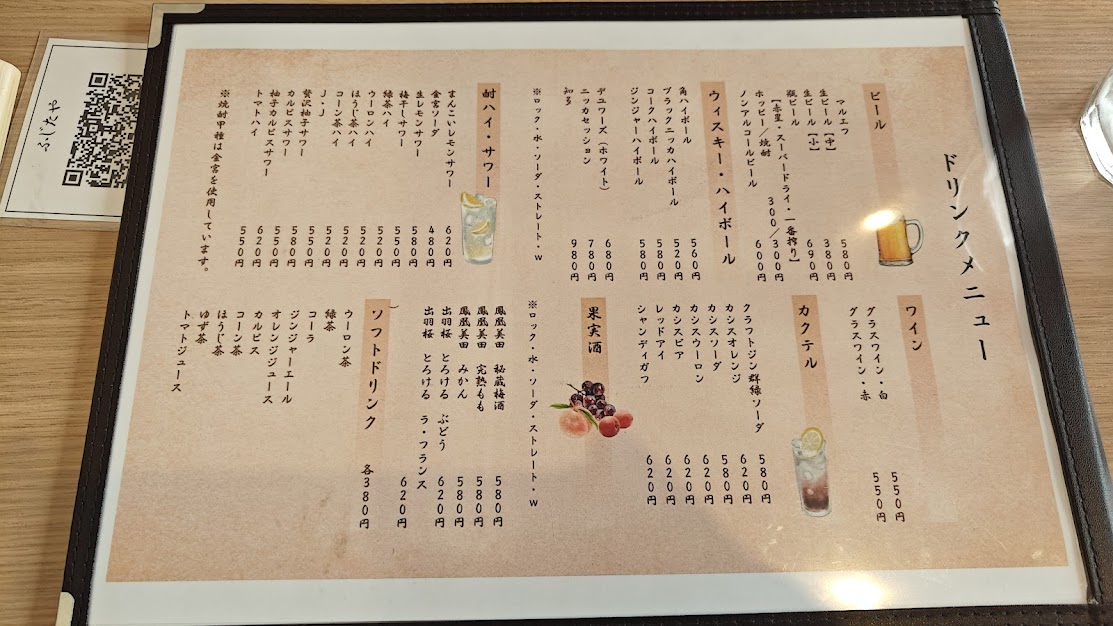 ドリンクメニュー
ビール
マルエフ
生ビール【中】 580円
生ビール【小】 380円
瓶ビール 690円
【赤星・スーパードライ・一番搾り】
ホッピー／焼酎 300／300円
ノンアルコールビール 600円
ウィスキー・ハイボール
角ハイボール 560円
ブラックニッカハイボール 520円
コークハイボール 580円
ジンジャーハイボール 580円
デュワーズ（ホワイト） 680円
ニッカセッション 780円
知多 980円
※ロック・水・ソーダ・ストレート・w
酎ハイ・サワー
まんこいレモンサワー 620円
金宮ソーダ 480円
生レモンサワー 580円
梅干しサワー 550円
緑茶ハイ 520円
ウーロンハイ 520円
ほうじ茶ハイ 520円
コーン茶ハイ 520円
J・J 550円
贅沢柚子サワー 580円
カルピスサワー 550円
柚子カルピスサワー 620円
トマトハイ 550円
※焼酎甲種は金宮を使用しています。
ワイン
グラスワイン・白 550円
グラスワイン・赤 550円
カクテル
クラフトジン 群緑ソーダ 580円
カシスオレンジ 620円
カシスソーダ 580円
カシスウーロン 620円
カシスピア 620円
レッドアイ 620円
シャンディガフ 620円
果実酒
※ロック・水・ソーダ・ストレート・w
鳳凰美田 秘蔵梅酒 580円
鳳凰美田 完熟もも 580円
鳳凰美田 みかん 580円
出羽桜 とろける ぶどう 620円
出羽桜 とろける ラ・フランス 620円
）
ソフトドリンク 各380円
ウーロン茶
緑茶
コーラ
ジンジャーエール
オレンジジュース
カルピス
コーン茶
ほうじ茶
ゆず茶
トマトジュース
ふじたや